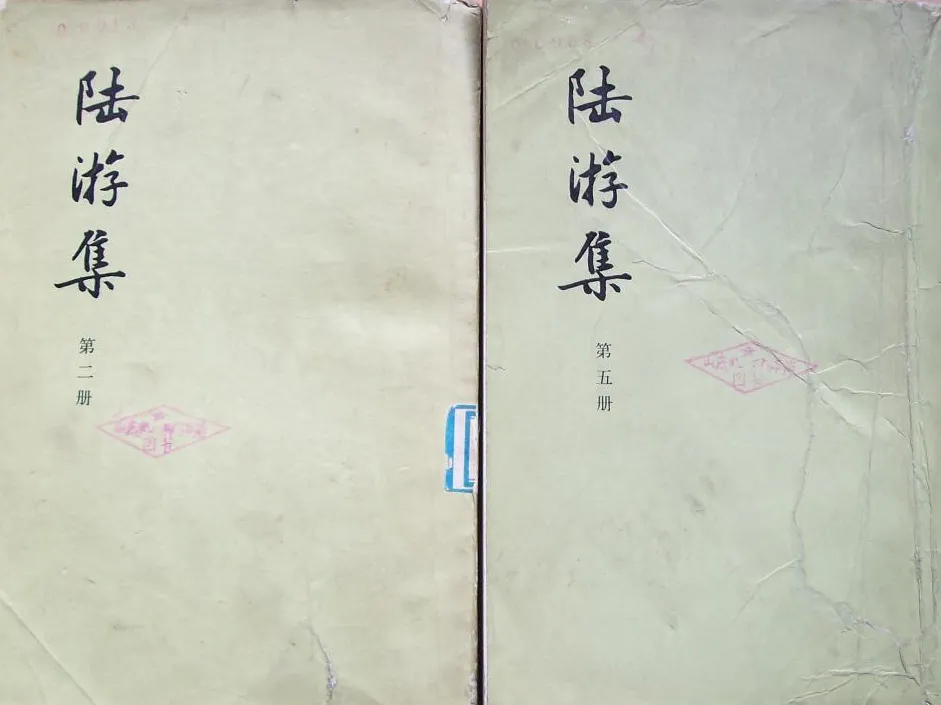 陆游集
第二册
陆游集
第五册